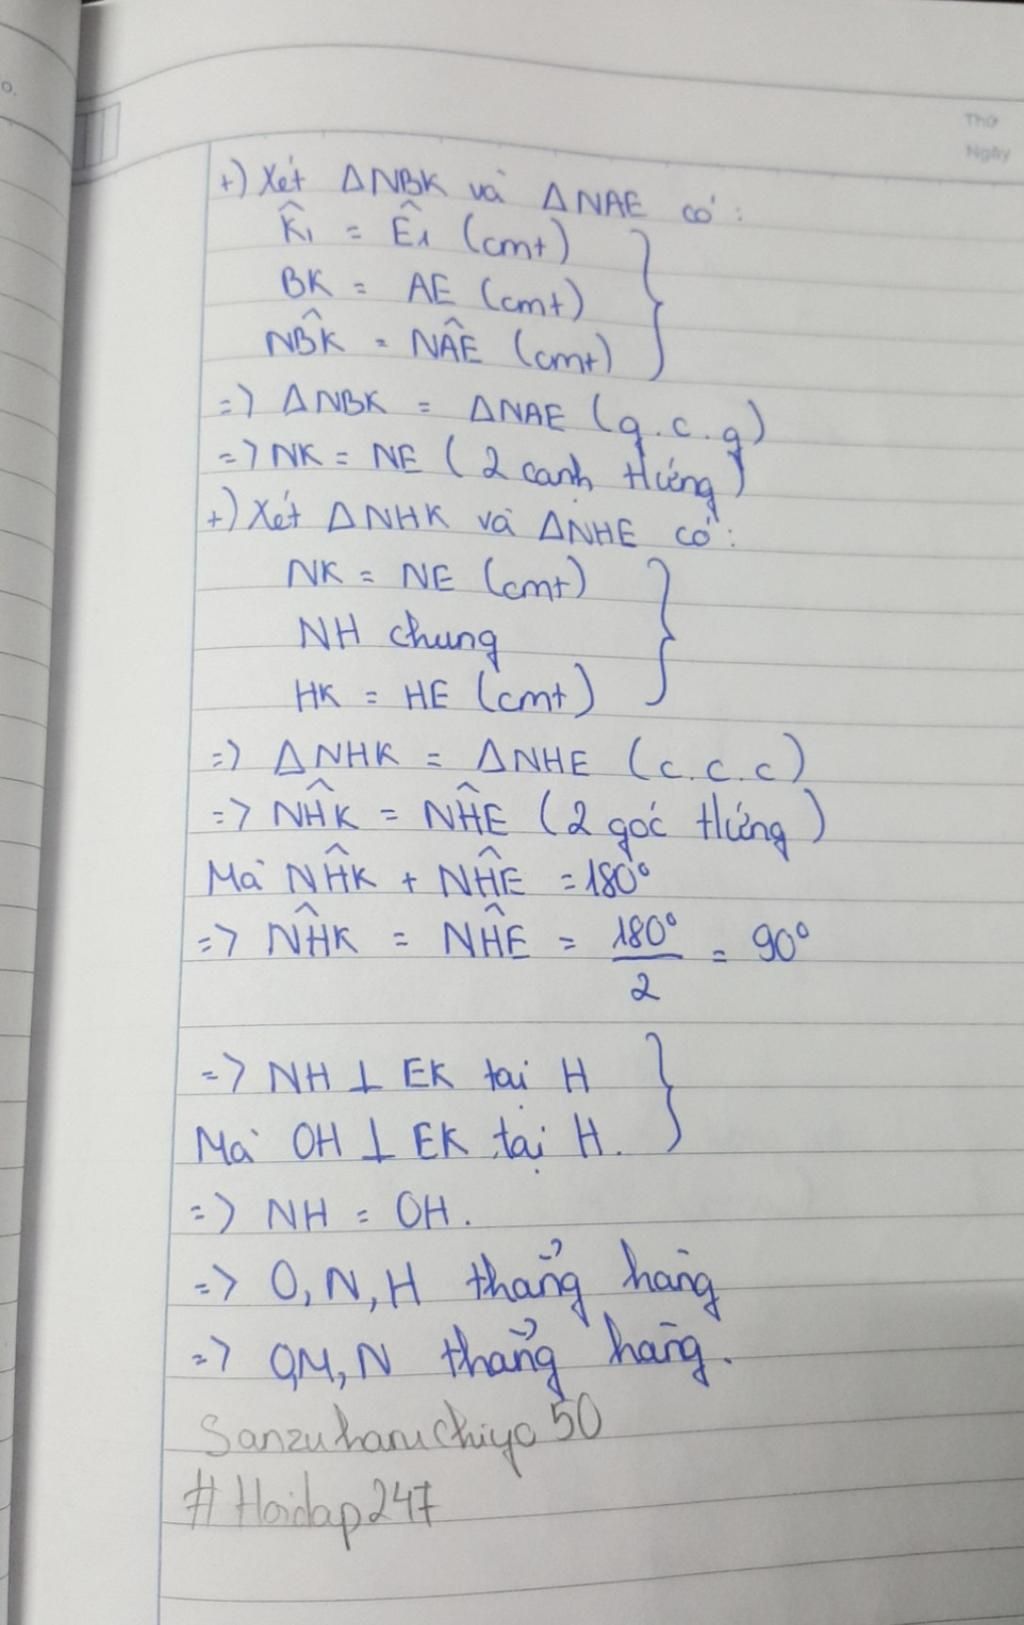 o.
Thứ
Ngày
+) Xét ΔNBK và ΔNAE có:
K̂₁ = Ê₁ (cmt)
BK = AE (cmt)
NB̂K = NÂE (cmt)
=> ΔNBK = ΔNAE (g.c.g)
=> NK = NE (2 cạnh tứng)
+) Xét ΔNHK và ΔNHE có:
NK = NE (cmt)
NH chung
HK = HE (cmt)
=> ΔNHK = ΔNHE (c.c.c)
=> NĤK = NĤE (2 góc tứng)
Mà NĤK + NĤE = 180°
=> NĤK = NĤE = 180°/2 = 90°
=> NH ⊥ EK tại H
Mà OH ⊥ EK tại H.
=> NH = OH.
=> O, N, H thẳng hàng
=> O,M, N thẳng hàng.
Sanzuharuchiyo50
#Hoidap247